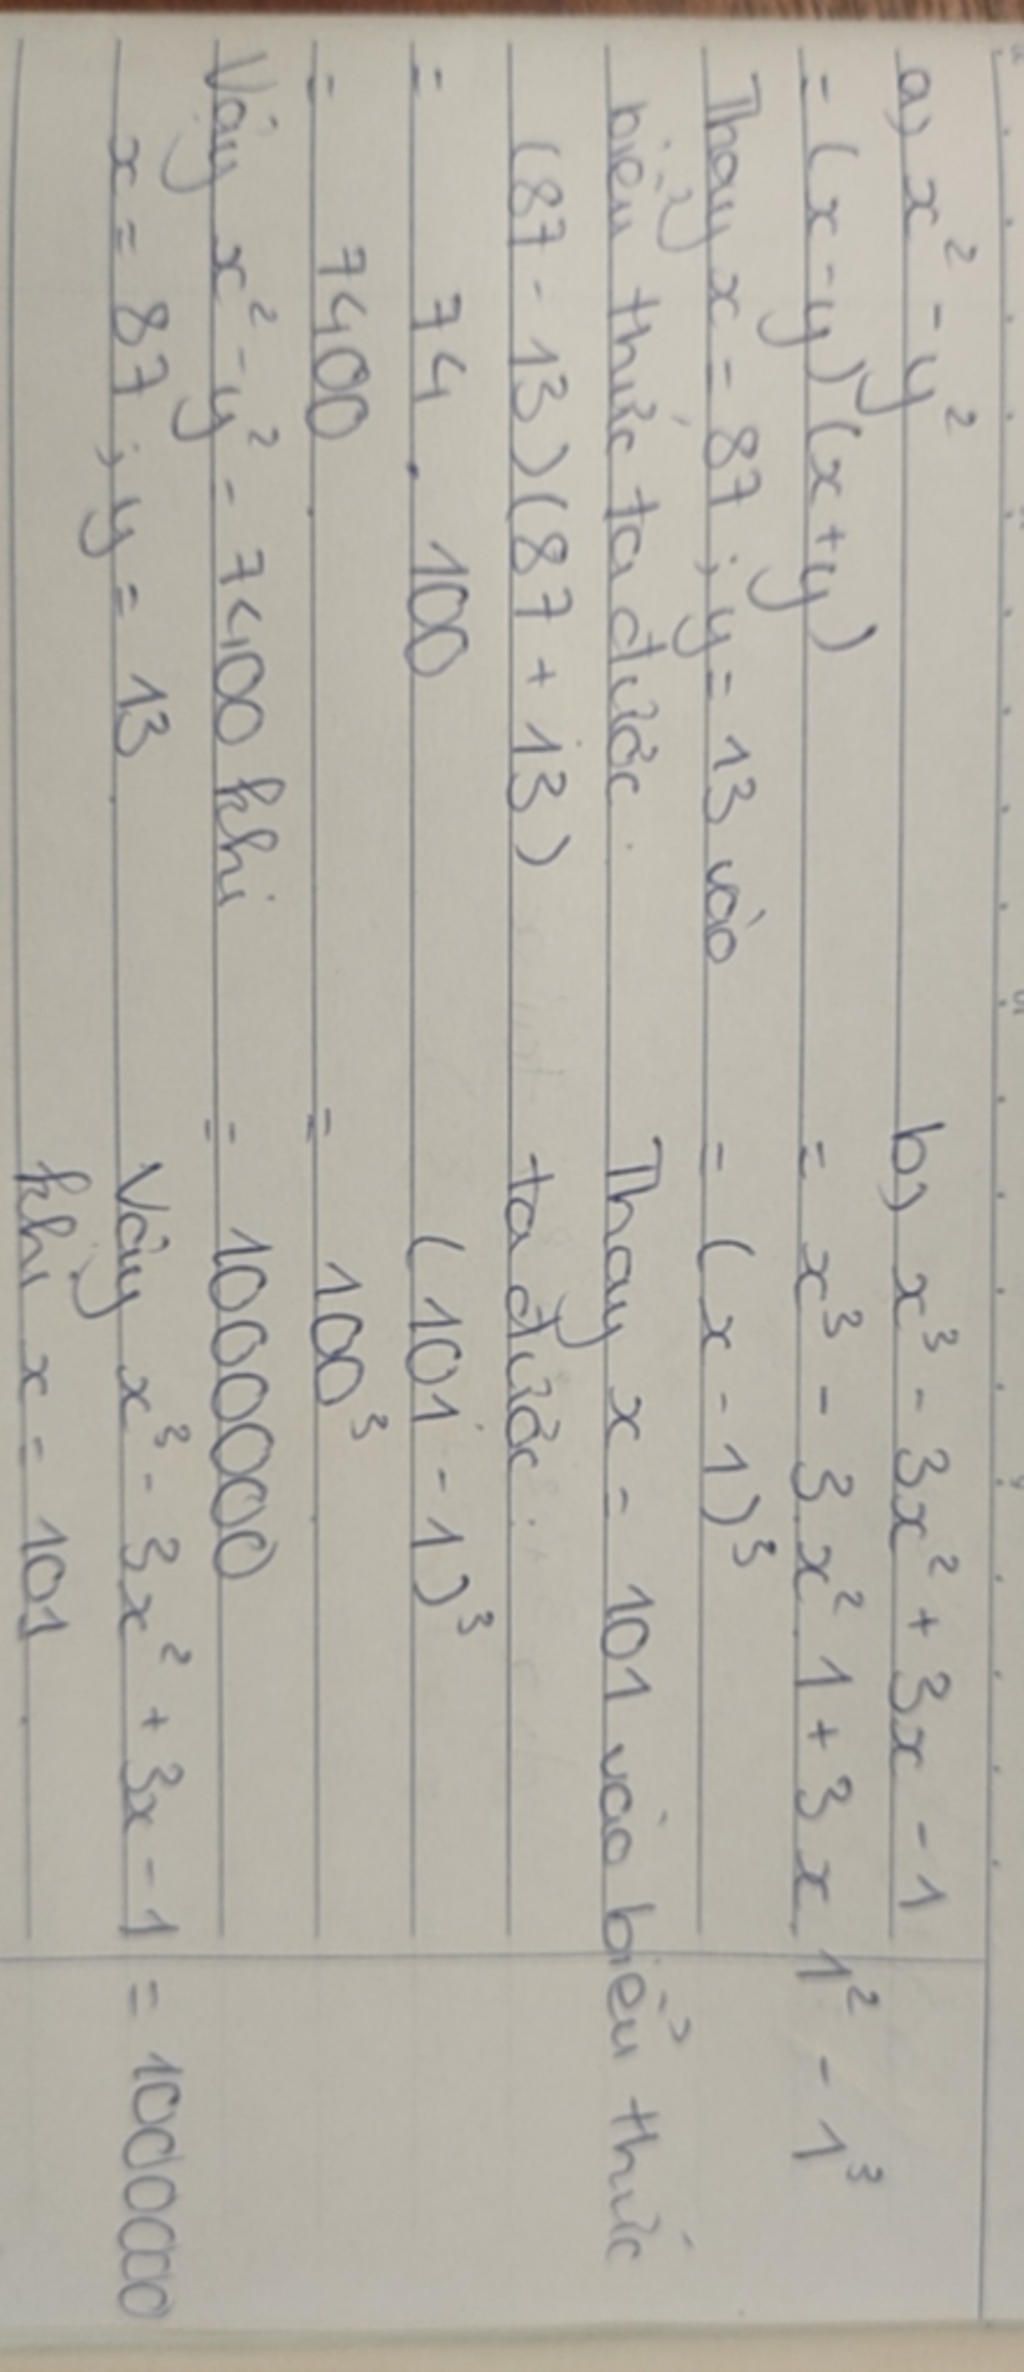 a) x² - y²
= (x - y)(x + y)
Thay x = 87 ; y = 13 vào
biểu thức ta được :
(87 - 13)(87 + 13)
= 74 . 100
= 7400
Vậy x² - y² = 7400 khi
x = 87 ; y = 13
b) x³ - 3x² + 3x - 1
= x³ - 3.x².1 + 3x.1² - 1³
= (x - 1)³
Thay x = 101 vào biểu thức
ta được :
(101 - 1)³
= 100³
= 1000000
Vậy x³ - 3x² + 3x - 1 = 1000000
khi x = 101